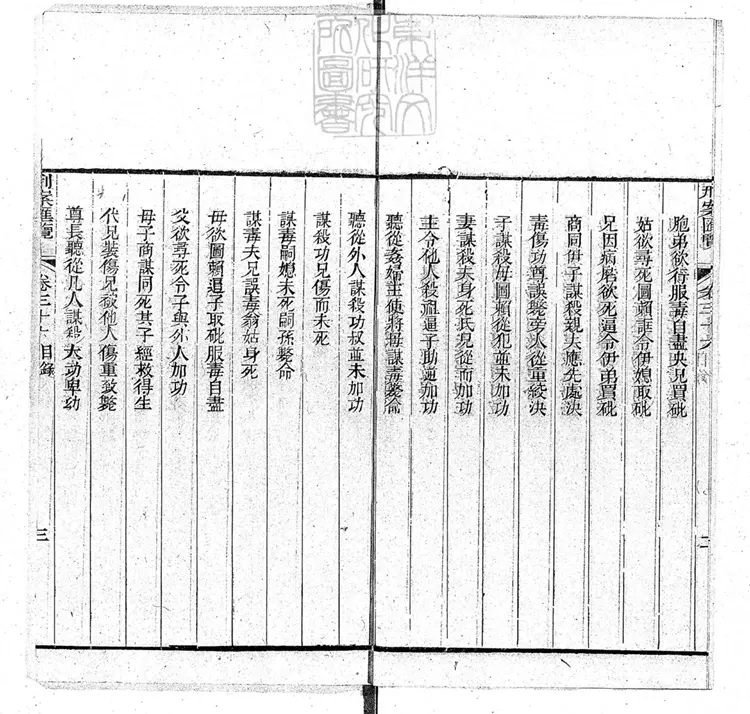 東洋文
化研究
所圖書
刑案匯覽 卷三十六 目錄 二
胞弟欲行服毒自盡央兄買砒
姑欲尋死圖賴誆令伊媳取砒
兄因病磨欲死逼令伊弟買砒
商同伊子謀殺親夫應先處決
毒傷功尊謀斃旁人從重絞決
子謀殺母圖賴從犯並未加功
妻謀殺夫身死氏兄從而加功
主令他人殺祖逼子助逆加功
聽從姦婦主使將母謀毒斃命
聽從外人謀殺功叔並未加功
謀殺功兄傷而未死
謀毒嗣媳未死嗣孫斃命
謀毒夫兄誤毒翁姑身死
毋欲圖賴逼子取砒服毒自盡
父欲尋死令子與外人加功
母子商謀同死其子經救得生
代兄裝傷兄被他人傷重致斃
尊長聽從凡人謀殺大功卑幼
刑案匯覽 卷三十六 目錄 三